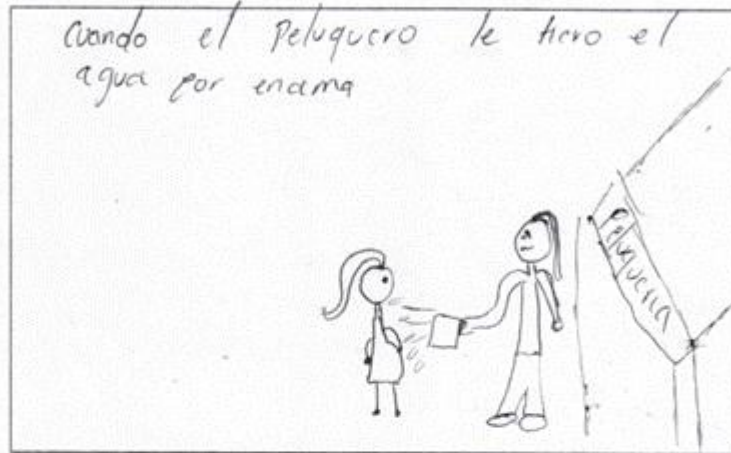 Cuando el Peluquero le tiro el
agua por encima
Peluqueria